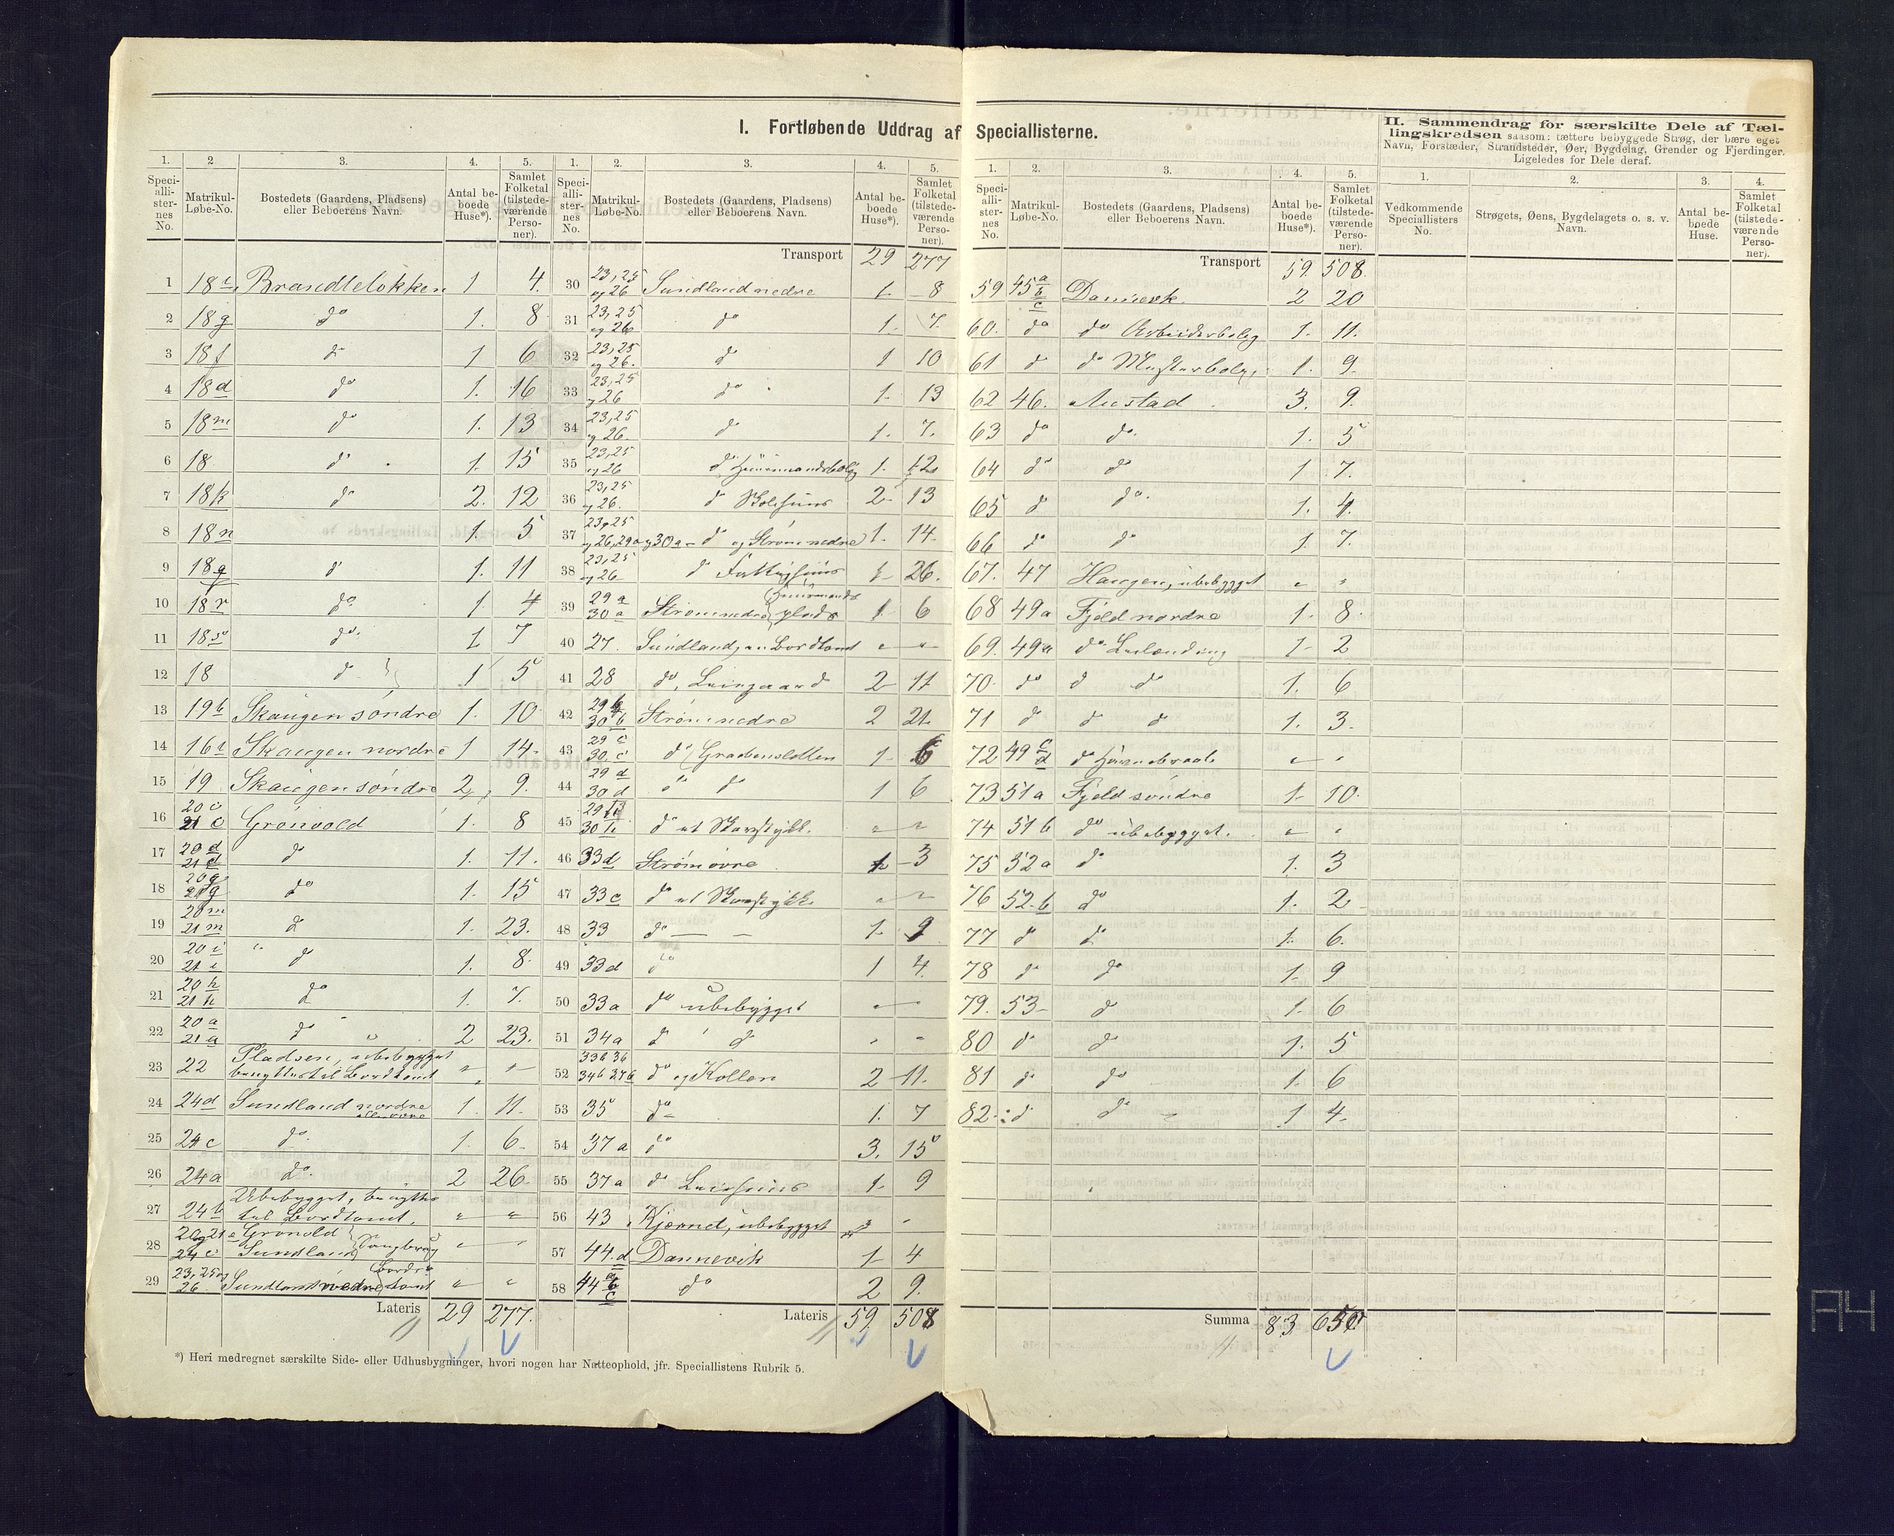 I. Fortløbende Uddrag af Speciallisterne.
II. Sammendrag for særskilte Dele af Tællingskredsen saasom: tættere bebyggede Strøg, der bære eget Navn, Forstæder, Strandsteder, Øer, Bygdelag, Grender og Fjerdinger. Ligeledes for Dele deraf.
1. 2 3. 4. 5.
Speciallisternes No. Matrikul-Løbe-No. Bostedets (Gaardens, Pladsens) eller Beboerens Navn. Antal beboede Huse*). Samlet Folketal (tilstedeværende Personer).
1 18c Brandteløkken 1 4.
2 18g do 1. 8.
3 18f do 1 6
4 18d do 1. 16
5 18m do 1. 13
6 18 do 1. 15
7 18k do 2. 12
8 18n 1. 5
9 18q do 1. 11
10 18r do 1. 4
11 18s do 1 7
12 18 do 1 5
13 19b Skaugen søndre 1. 10
14 16b Skaugen nordre 1 14.
15 19 Skaugen søndre 2, 9.
16 20c 21c Grønvold 1. 8
17 20d 21d do 1. 11.
18 20g 21g do 1. 15
19 20m 21m do 1. 23.
20 20i 21i do 1. 8.
21 20h 21h do 1. 7.
22 20a 21a do 2 23.
23 22 Pladsen, ubebygget benyttes til Bordtomt " "
24 24d Sundland nordre 1. 11.
25 24c do. 1. 6.
26 24a do. 2 26.
27 24b Ubebygget, benyttes til Bordtomt. " "
28 Sundland " "
29 23, 25 og 26. Sundland nedre " "
Lateris 29 277.
1. 2. 3. 4. 5.
Speciallisternes No. Matrikul-Løbe-No. Bostedets (Gaardens, Pladsens) eller Beboerens Navn. Antal beboede Huse*). Samlet Folketal (tilstedeværende Personer).
Transport 29 277
30 23, 25 og 26 Sundland nedre 1 8
31 23, 25 og 26 do 1. 7.
32 23, 25 og 26. do 1 10
33 23, 25 og 26 do 1. 13
34 23, 25 og 26. do 1. 7.
35 23, 25 og 26 do Huusmandsbolig 1. 12
36 23, 25 og 26. do 2 13
37 23, 25 og 26, 29a og 30a do og Strøm nedre 1. 14.
38 23, 25 og 26 do Fattighuus 1 26.
39 29a 30a Strøm nedre Huusmandsplads 1 6
40 27. Sundland, en Bordtomt " "
41 28 do, Leiegaard 2 11
42 29b 30b Strøm nedre 2 21.
43 29c 30c do Grabensletten 1 6
44 29d 30d do do 1 6
45 do et Skovstykke. " "
46 33d Strøm øvre 1 3
47 33c do et Skovstykke " "
48 33 do 1. 9
49 33d do 1 4.
50 33a do ubebygget " "
51 34a do do " "
52 33b 36 34b 37b do og Kollen 2 11.
53 35 do 1. 7
54 37a do 3. 15
55 37a do Leiehuus 1. 9
56 43 Kjerned, ubebygget " "
57 44.d Dannevik 1 4
58 44 do 2 9.
Lateris 59 508
1. 2. 3. 4. 5.
Speciallisternes No. Matrikul-Løbe-No. Bostedets (Gaardens, Pladsens) eller Beboerens Navn. Antal beboede Huse*). Samlet Folketal (tilstedeværende Personer).
Transport 59. 508.
59 45 a b c Dannevik 2 20
60. do do Arbeiderbolig 1. 11.
61 do do Mesterbolig 1. 9.
62 46. Austad 3. 9.
63 do do. 1. 5
64 do do 1. 7.
65 do do. 1. 4.
66 do do 1. 7.
67. 47 Haugen, ubebygget " "
68 49a Fjeld nordre 1. 8.
69. 49a do Leilænding 1 2
70. do do do 1. 6
71 do do do 1. 3.
72 49 c d do " "
73 51a Fjeld søndre 1. 10.
74 51b do ubebygget. " "
75 52a do 1. 3
76 52.b do 1. 2
77 do do 1. 6.
78 do do 1. 9
79. 53 do 1. 6
80 do do 1. 5
81 do do 1. 6
82. do do 1 4.
Summa 83 650
1. 2. 3. 4.
Vedkommende Speciallisters No. Strøgets, Øens, Bygdelagets o. s. v. Navn. Antal beboede Huse. Samlet Folketal (tilstedeværende Personer).
*) Heri medregnet særskilte Side- eller Udhusbygninger, hvori nogen har Natteophold, jfr. Speciallistens Rubrik 5.
A4